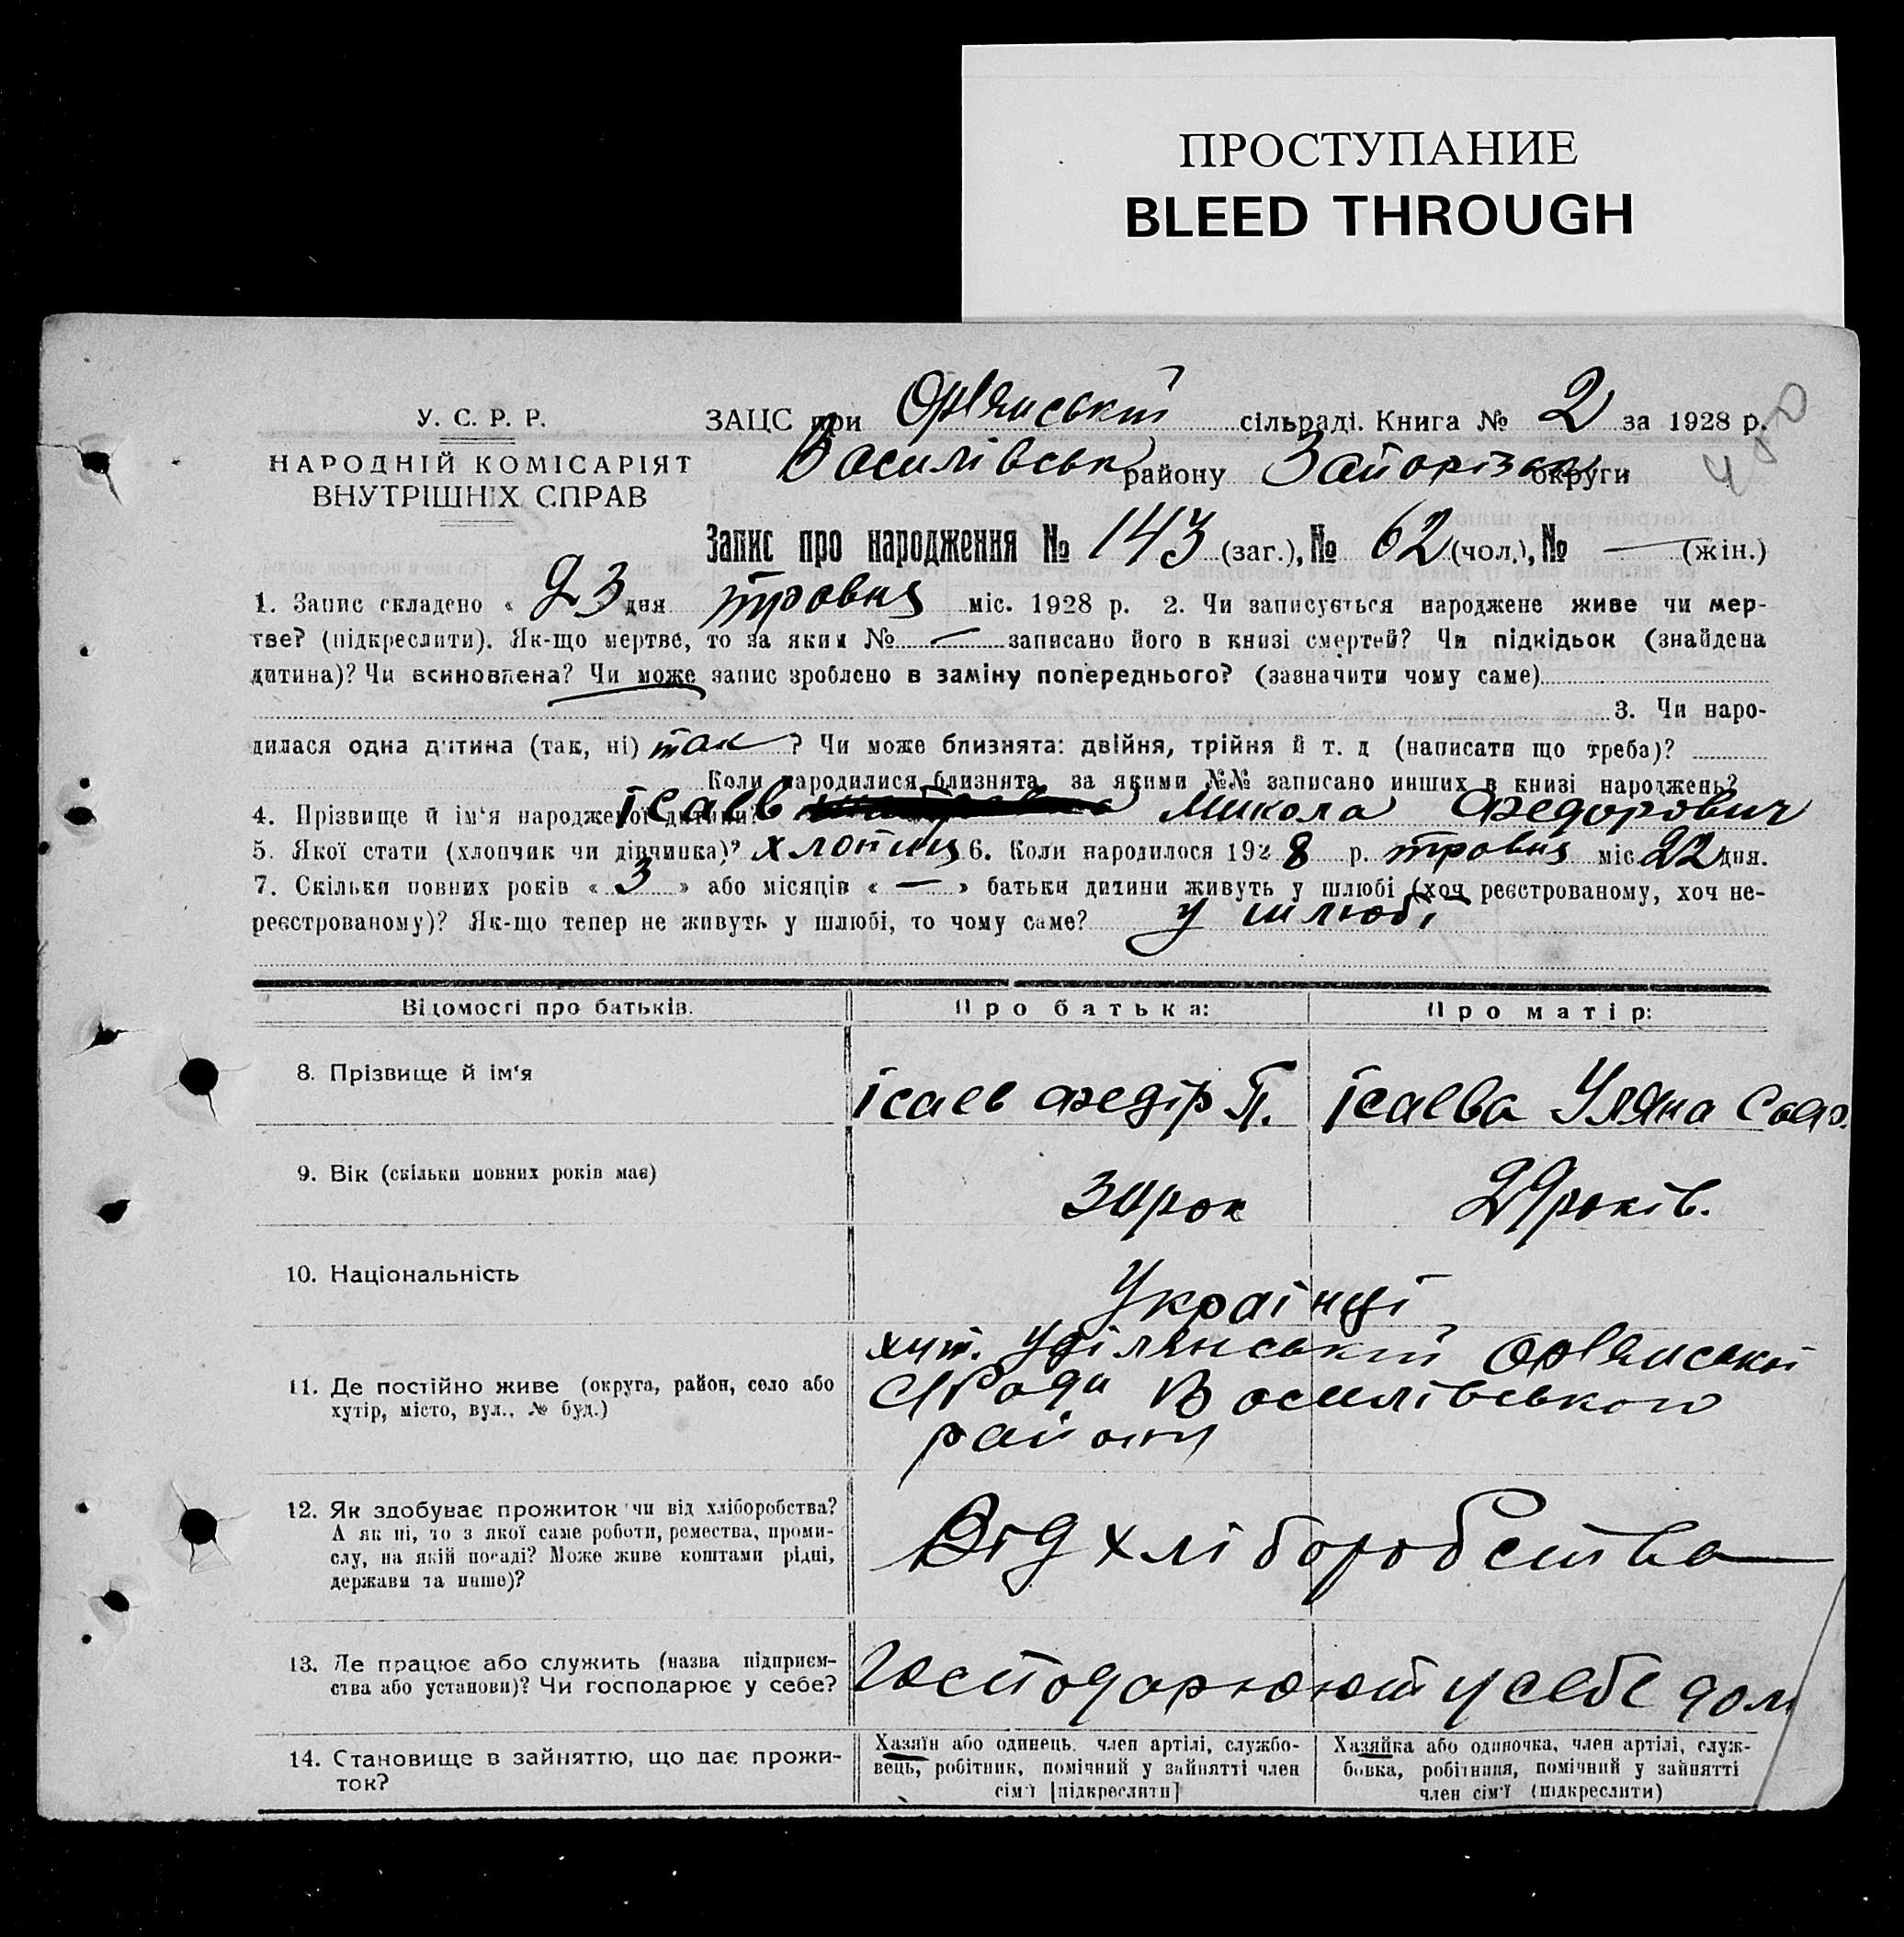 ПРОСТУПАНИЕ
BLEED THROUGH
У. С. Р. Р.
НАРОДНІЙ КОМІСАРІЯТ
ВНУТРІШНІХ СПРАВ
ЗАЦС при Орlянській сільраді. Книга № 2 за 1928 р.
Василівськ району Запоріз округи
Запис про народження № 143 (заг.), № 62 (чол.), № — (жін.)
1. Запис складено « 23 дня травня міс. 1928 р. 2. Чи записується народжене живе чи мер-
тве? (підкреслити). Як-що мертве, то за яким № — записано його в книзі смертей? Чи підкідьок (знайдена
дитина)? Чи всиновлена? Чи може запис зроблено в заміну попереднього? (зазначити чому саме)
3. Чи наро-
дилася одна дитина (так, ні) так ? Чи може близнята: двійня, трійня й т. д (написати що треба)?
Коли народилися близнята, за якими №№ записано инших в книзі народжень?
4. Прізвище й ім'я народженої дитини? Ісаєв Микола Федорович
5. Якої стати (хлопчик чи дівчинка)? хлопиц 6. Коли народилося 1928 р. травня міс. 22 дня.
7. Скільки повних років « 3 » або місяців « — » батьки дитини живуть у шлюбі (хоч реєстрованому, хоч не-
реєстрованому)? Як-що тепер не живуть у шлюбі, то чому саме? у шлюбі
Відомості про батьків. Про батька: Про матір:
8. Прізвище й ім'я Ісаєв Федір П. Ісаєва Уляна
9. Вік (скільки повних років має) рок 29 років.
10. Національність Українці
11. Де постійно живе (округа, район, село або
хутір, місто, вул., № буд.)
хут. Уділянській Орlянської
С/Ради Василівського
району
12. Як здобуває прожиток чи від хліборобства?
А як ні, то з якої саме роботи, ремества, проми-
слу, на якій посаді? Може живе коштами рідні,
держави та инше)?
Від хліборобства
13. Де працює або служить (назва підприєм-
ства або установи)? Чи господарює у себе?
Господарюють у себе дома
14. Становище в зайняттю, що дає прожи-
ток?
Хазяїн або одинець, член артілі, службо-
вець, робітник, помічний у зайнятті член
сім'ї [підкреслити]
Хазяйка або одиночка, член артілі, служ-
бовка, робітниця, помічний у зайнятті
член сім'ї (підкреслити)